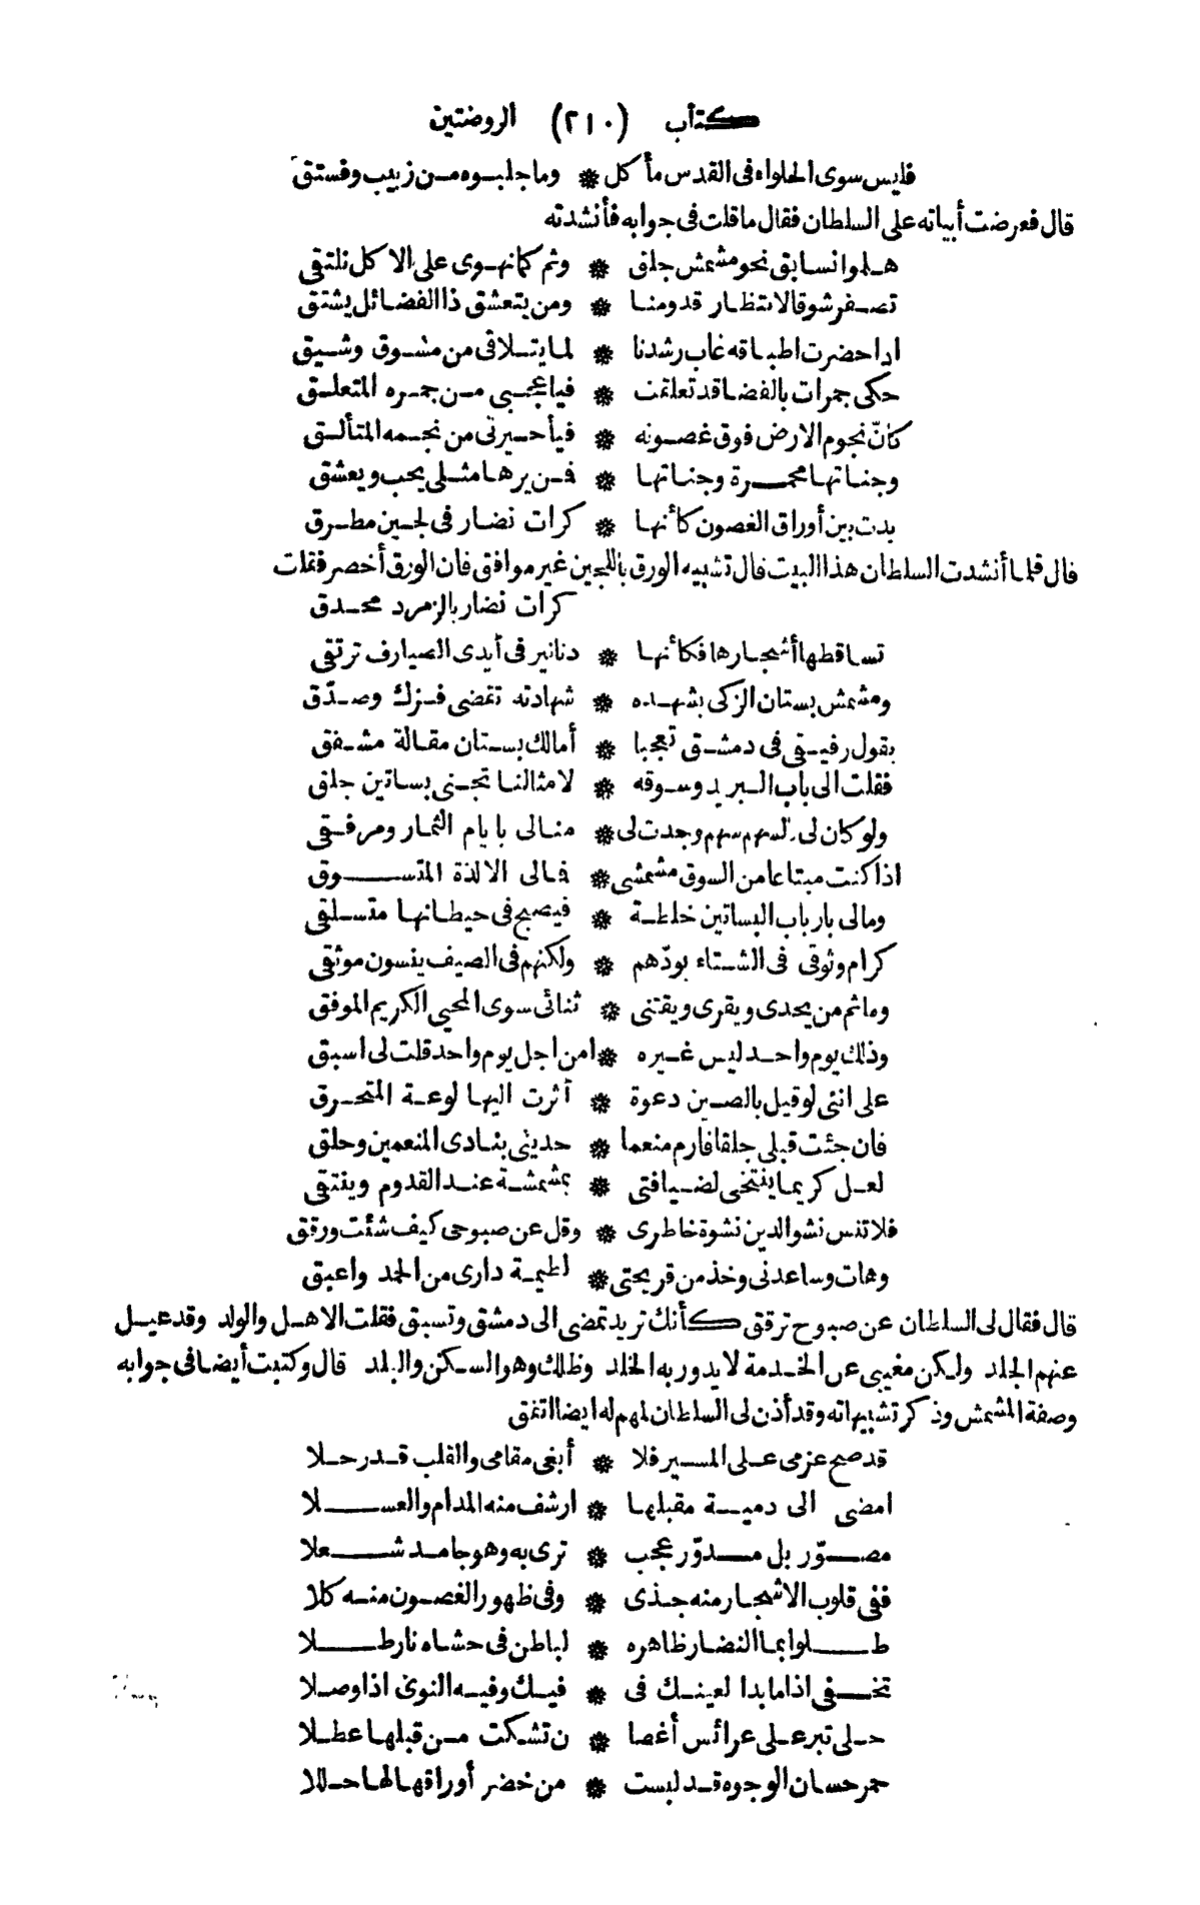 كتاب (٢١٠) الروضتين
فليس سوى الحلواء فى القدس مأكل * وما جلبوه من زبيب وفستق
قال فعرضت أبياته على السلطان فقال ما قلت فى جوابه فأنشدته
هلموا نسابق نحو مشمش جلق * وثم كما نهوى على الاكل نلتقى
تصفر شوقا لانتظار قدومنا * ومن يتعشق ذا الفضائل يشتق
اذا حضرت اطباقه غاب رشدنا * لما يتلاقى من مشوق وشيق
حكى جمرات بالفضا قد تعلقت * فيا عجبى من جمره المتعلق
كأنّ نجوم الارض فوق غصونه * فيا حيرتى من نجمه المتألق
وجناتها محمرة وجناتها * فمن يرها مثلى يحب ويعشق
بدت بين أوراق الغصون كأنها * كرات نضار فى لجين مطرق
قال فلما أنشدت السلطان هذا البيت قال تشبيه الورق باللجين غير موافق فان الورق أخضر فقلت
كرات نضار بالزمرد محدق
تساقطها أشجارها فكأنها * دنانير فى أيدى الصيارف ترتقى
ومشمش بستان الزكى بشهده * شهادته تقضى فزك وصدّق
يقول رفيقى فى دمشق تعجبا * أمالك بستان مقالة مشفق
فقلت الى باب البريد وسوقه * لامثالنا تجنى بساتين جلق
ولو كان لى سهم وجدت لى * منالى بايام الثمار ومرفقى
اذا كنت مبتاعا من السوق مشمشى * فمالى الا لذة المتسوق
ومالى بارباب البساتين خلطة * فيصبح فى حيطانها متسلقى
كرام وثوقى فى الشتاء بودّهم * ولكنهم فى الصيف ينسون موثقى
وما ثم من يجدى ويقرى ويقتنى * ثنائى سوى المحيى الكريم الموفق
وذلك يوم واحد ليس غيره * امن اجل يوم واحد قلت لى اسبق
على اننى لو قيل بالصين دعوة * أثرت اليها لوعة المتحرق
فان جئت قبلى جلقا فارم منعما * حديثى بنادى المنعمين وحلق
لعل كريما ينتخى لضيافتى * بمشمشة عند القدوم وينتقى
فلا تنس نشو الدين نشوة خاطرى * وقل عن صبوحى كيف شئت ورقق
وهات وساعدنى وخذ من قريحتى * لطيمة دارى من الحمد واعبق
قال فقال لى السلطان عن صبوح ترقق كأنك تريد تمضى الى دمشق وتسبق فقلت الاهل والولد وقد عيل
عنهم الجلد ولكن مغيبى عن الخدمة لا يدور به الخلد وظلك وهو السكن والبلد قال وكتبت أيضا فى جوابه
وصفة المشمش وذكر تشبيهاته وقد أذن لى السلطان لمهم له ايضا اتفق
قد صح عزمى على المسير فلا * أبغى مقامى والقلب قد رحلا
امضى الى دمية مقبلها * ارشف منه المدام والعسلا
مصوّر بل مدوّر عجب * ترى به وهو جامد شعلا
ففى قلوب الاشجار منه جذى * وفى ظهور الغصون منه كلا
طلوا بماالنضار ظاهره * لباطن فى حشاه نار طلا
تخفى اذا ما بدا لعينك فى * فيك وفيه النوى اذا وصلا
حلى تبر على عرائس أغصا * ن تشكت من قبلها عطلا
حمر حسان الوجوه قد لبست * من خضر أوراقها لها حللا